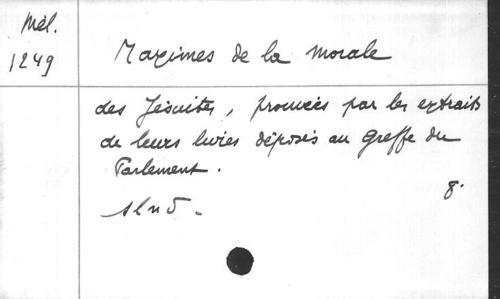 Mél.
1249
Maximes de la morale
des Jésuites, prouvées par les extraits
de leurs livres déposés au Greffe du
Parlement.
8°